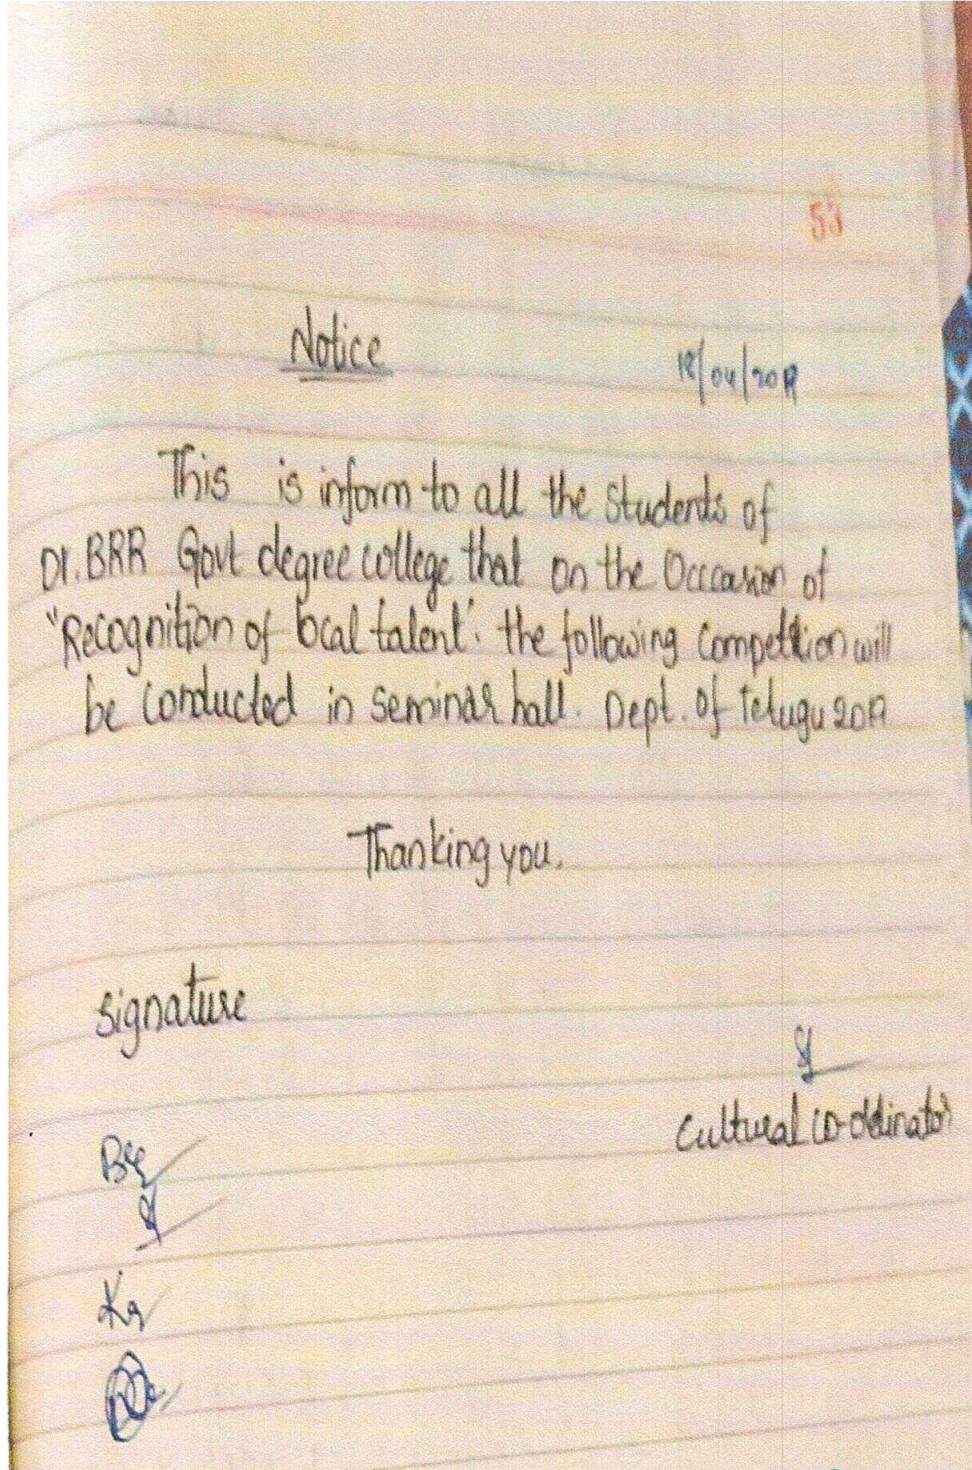 53
Notice
/04/2019
This is inform to all the Students of
Dr. BRR Govt degree college that on the Occcasion of
"Recognition of local talent". the following Competition will
be conducted in Seminar hall. Dept. of Telugu 2019
Thanking you.
signature
Cultural co-ordinator